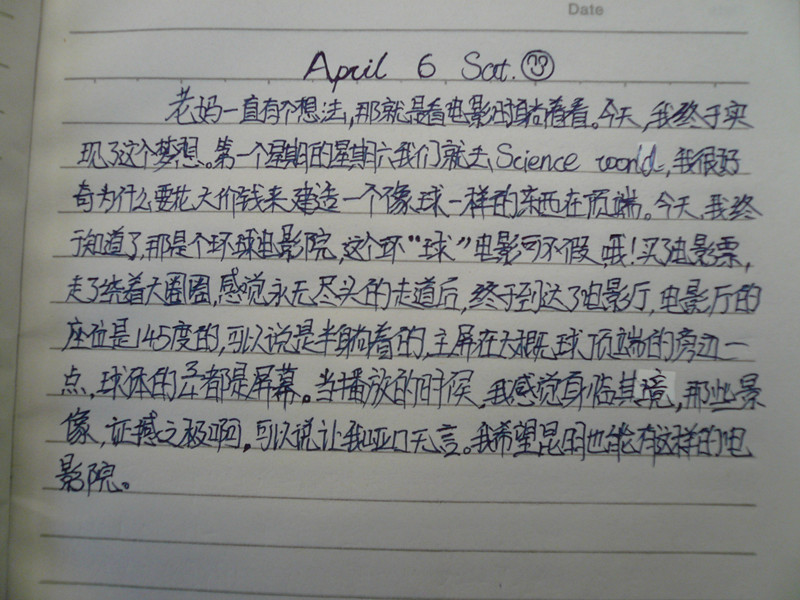 Date
April 6 Sat.
老妈一直有个想法,那就是看电影时躺着看。今天,我终于实
现了这个梦想。第一个星期的星期六我们就去Science world,我很好
奇为什么要花大价钱来建造一个像球一样的东西在顶端。今天,我终
于知道了,那是个环球电影院,这个环“球”电影可不假哦!买了电影票,
走了绕着大圈圈,感觉永无尽头的走道后,终于到达了电影厅,电影厅的
座位是145度的,可以说是半躺着的,主屏在大概球顶端的旁边一
点,球体的都是屏幕。当播放的时候,我感觉身临其境,那些景
像,证撼之极啊,可以说让我哑口无言。我希望昆明也能有这样的电
影院。